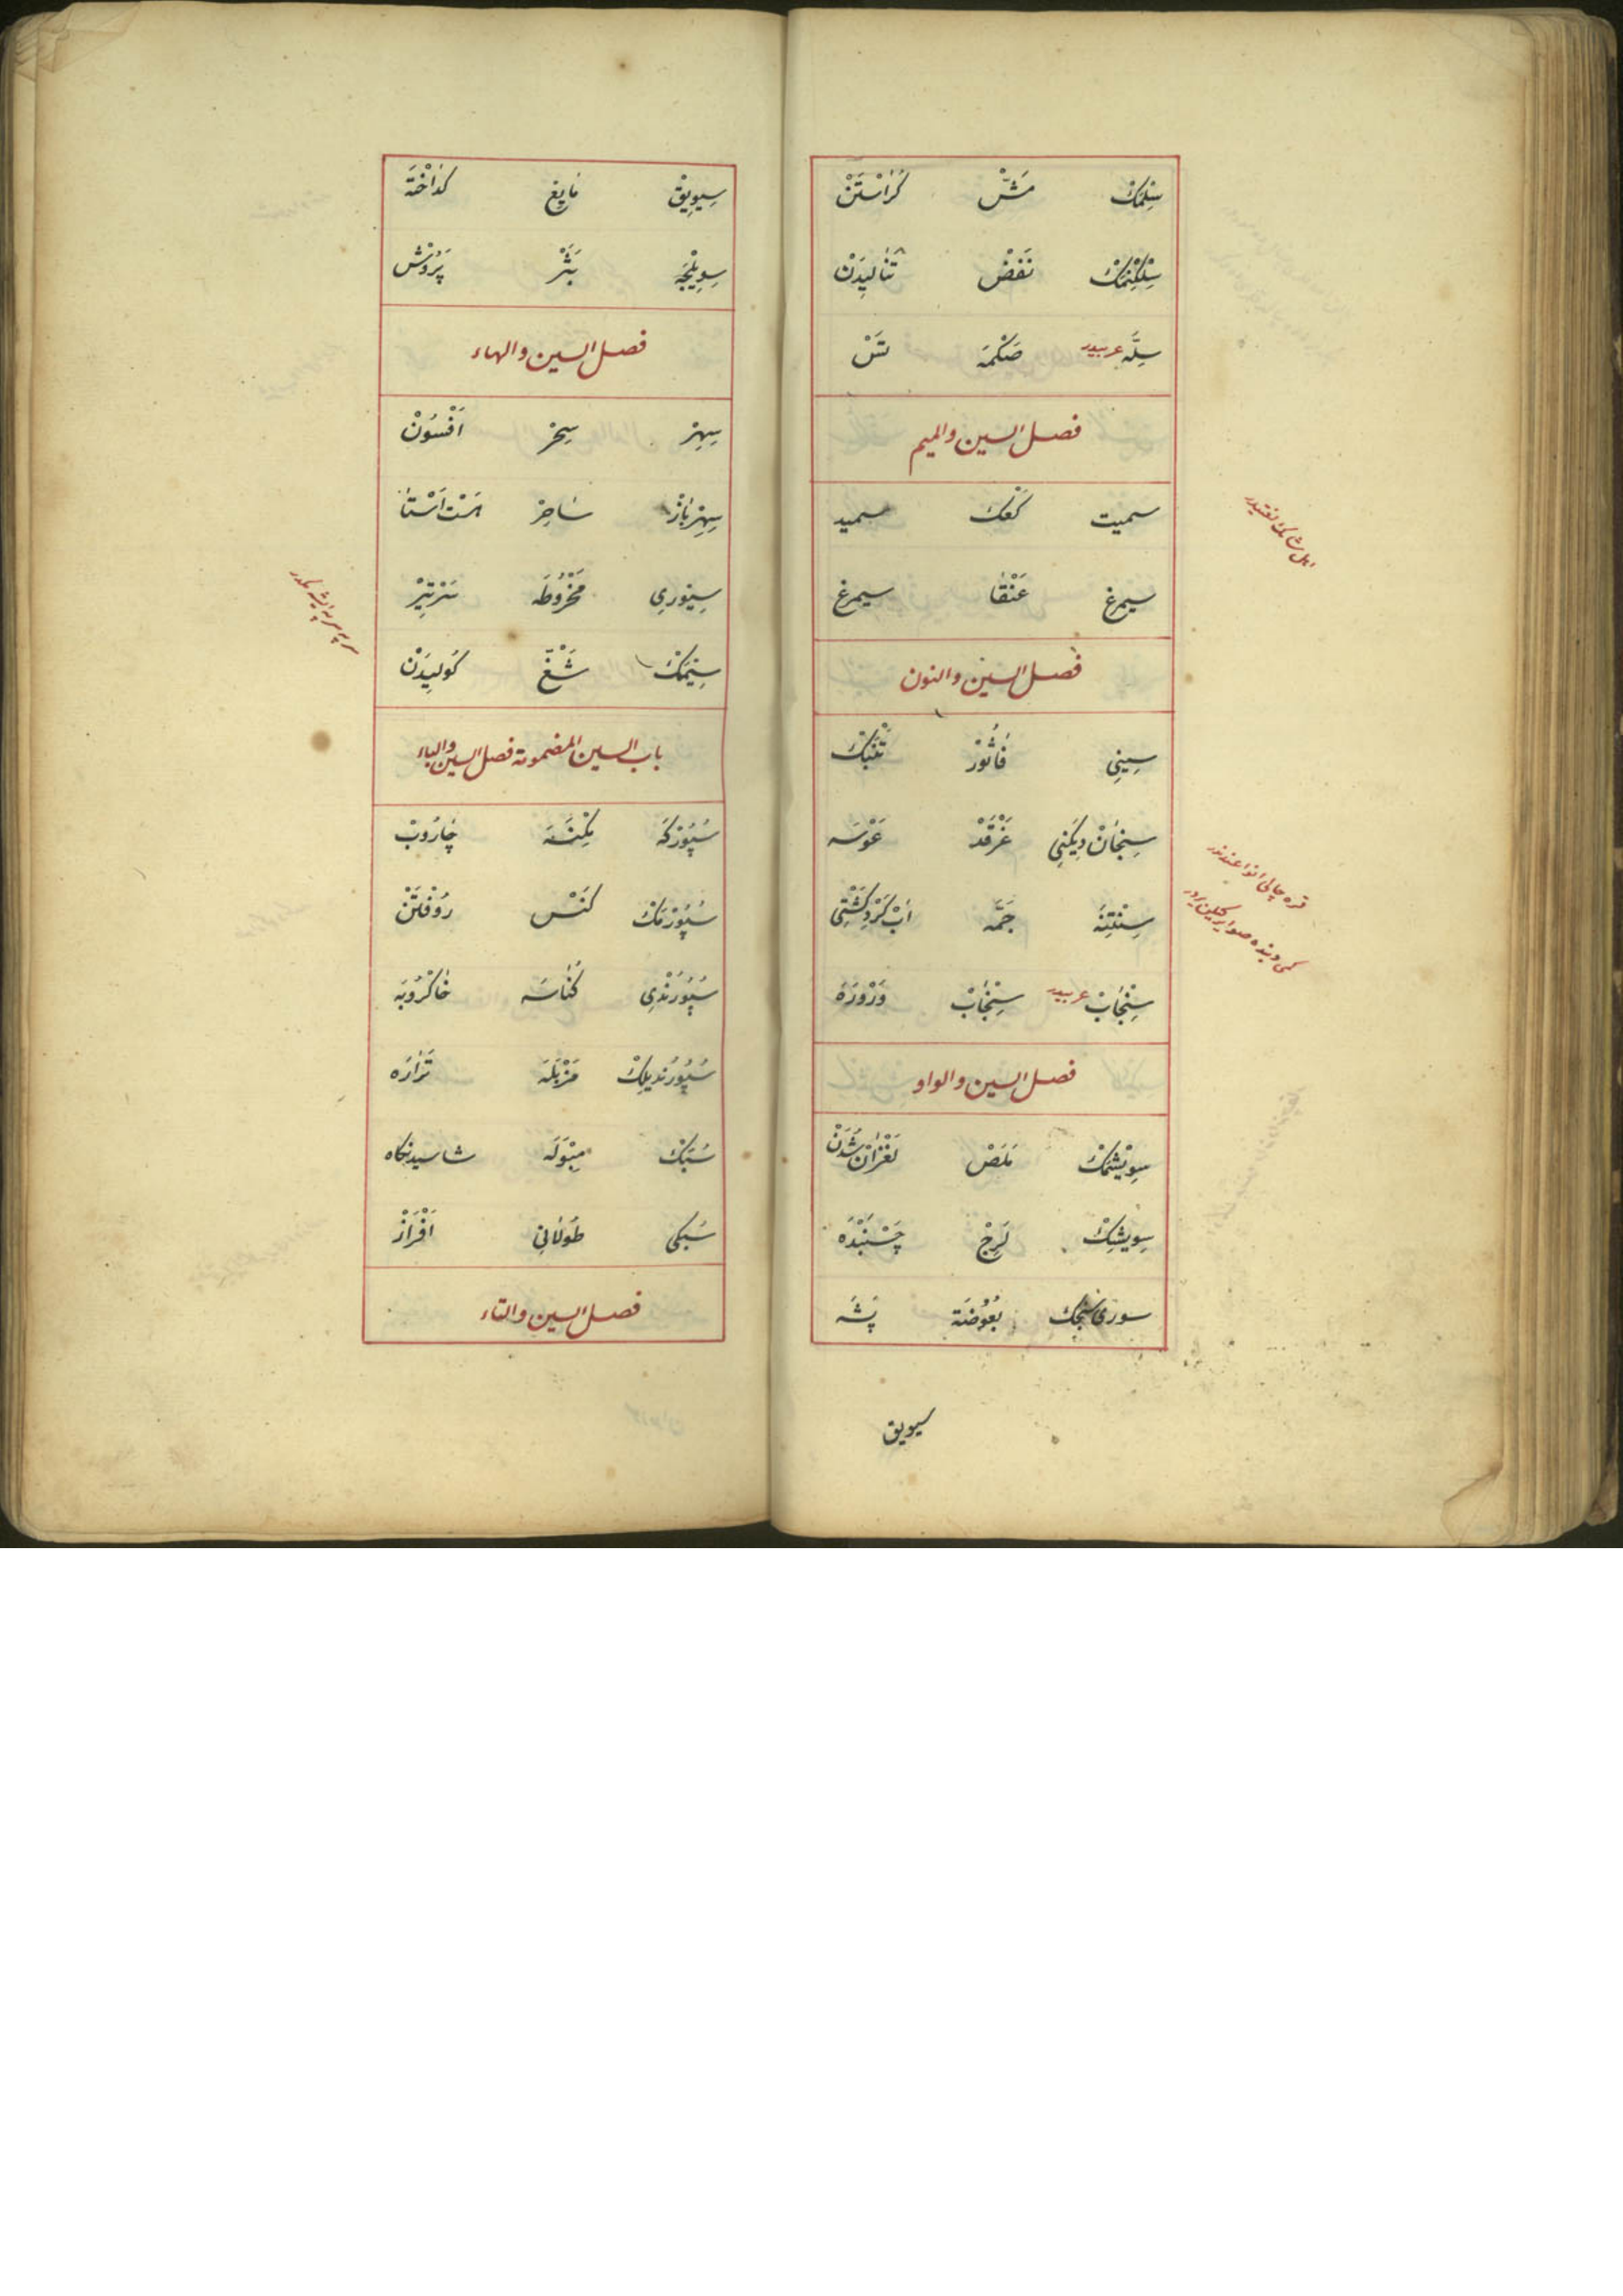 سِلْمَكْ مَشّْ كَرَاسْتَنْ
سِلْكِنْمَكْ نَفَضْ تَنَالِيدَنْ
سِلَّه عربيدر صَكْمَه تَسْ
فصل السين والميم
سميت كَعْك سميد
سيمرغ عَنْقَا سيمرغ
فصل السين والنون
سِينِي فَاثُورْ تَنْبَكْ
سِنْجَانْ دِيكَنِي غَرْقَدْ عَوْسَه
سِنْتِنَه جَمَّه اَبْ كَرْدِ كَشْتِي
سِنْجَابْ عربيدر سِنْجَابْ وَرْوَرَه
فصل السين والواو
سِوِيشْمَكْ مَلَصْ لَغْزَانْ شُدَنْ
سِوِيشِكْ لَزِجْ چَسْبَنْدَه
سورى سنجك بَعُوضَة پَشَه
سيويق
سِيوِيقْ مَايِعْ كدَاخْتَه
سِوِيلْجَه بَثْرْ پَرْوَشْ
فصل السين والهاء
سِهِرْ سِحِرْ اَفْسُونْ
سِهِرْبَازْ سَاحِرْ هَسْت اَسْتَا
سِيوْرِي مَخْرُوطَه سَرْتِيزْ
سِيمَكْ شَغّْ كَولِيدَنْ
باب السين المضمومة فصل السين والباء
سُپُورْكَه مِكْنَسَه چَارُوبْ
سُپُورْمَكْ كَنَسْ رُوفْتَنْ
سُپُورُنْدِي كُنَاسَه خَاكْرُوبَه
سُپُورُنْدِيلِكْ مَزْبَلَه تَرَارَه
سُبَكْ مِبْوَلَه شاسيدنگاه
سُبكِى طَولَانِي اَفْرَازْ
فصل السين والتاء